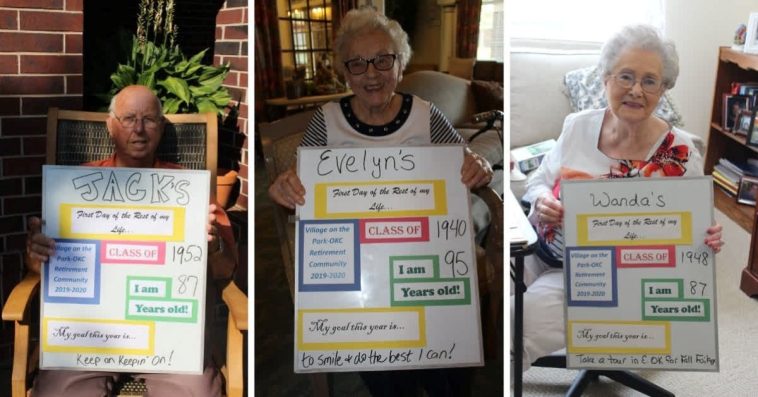 JACK'S
First Day of the Rest of my
Life...
Village on the
Park-OKC
Retirement
Community
2019-2020
CLASS OF 1952
I am 87
Years old!
My goal this year is...
Keep on Keepin' On!
Evelyn's
First Day of the Rest of my
Life...
Village on the
Park-OKC
Retirement
Community
2019-2020
CLASS OF 1940
I am 95
Years old!
My goal this year is...
to smile & do the best I can!
Wanda's
First Day of the Rest of my
Life...
Village on the
Park-OKC
Retirement
Community
2019-2020
CLASS OF 1948
I am 87
Years old!
My goal this year is...
Take a tour in E. OK for Fall